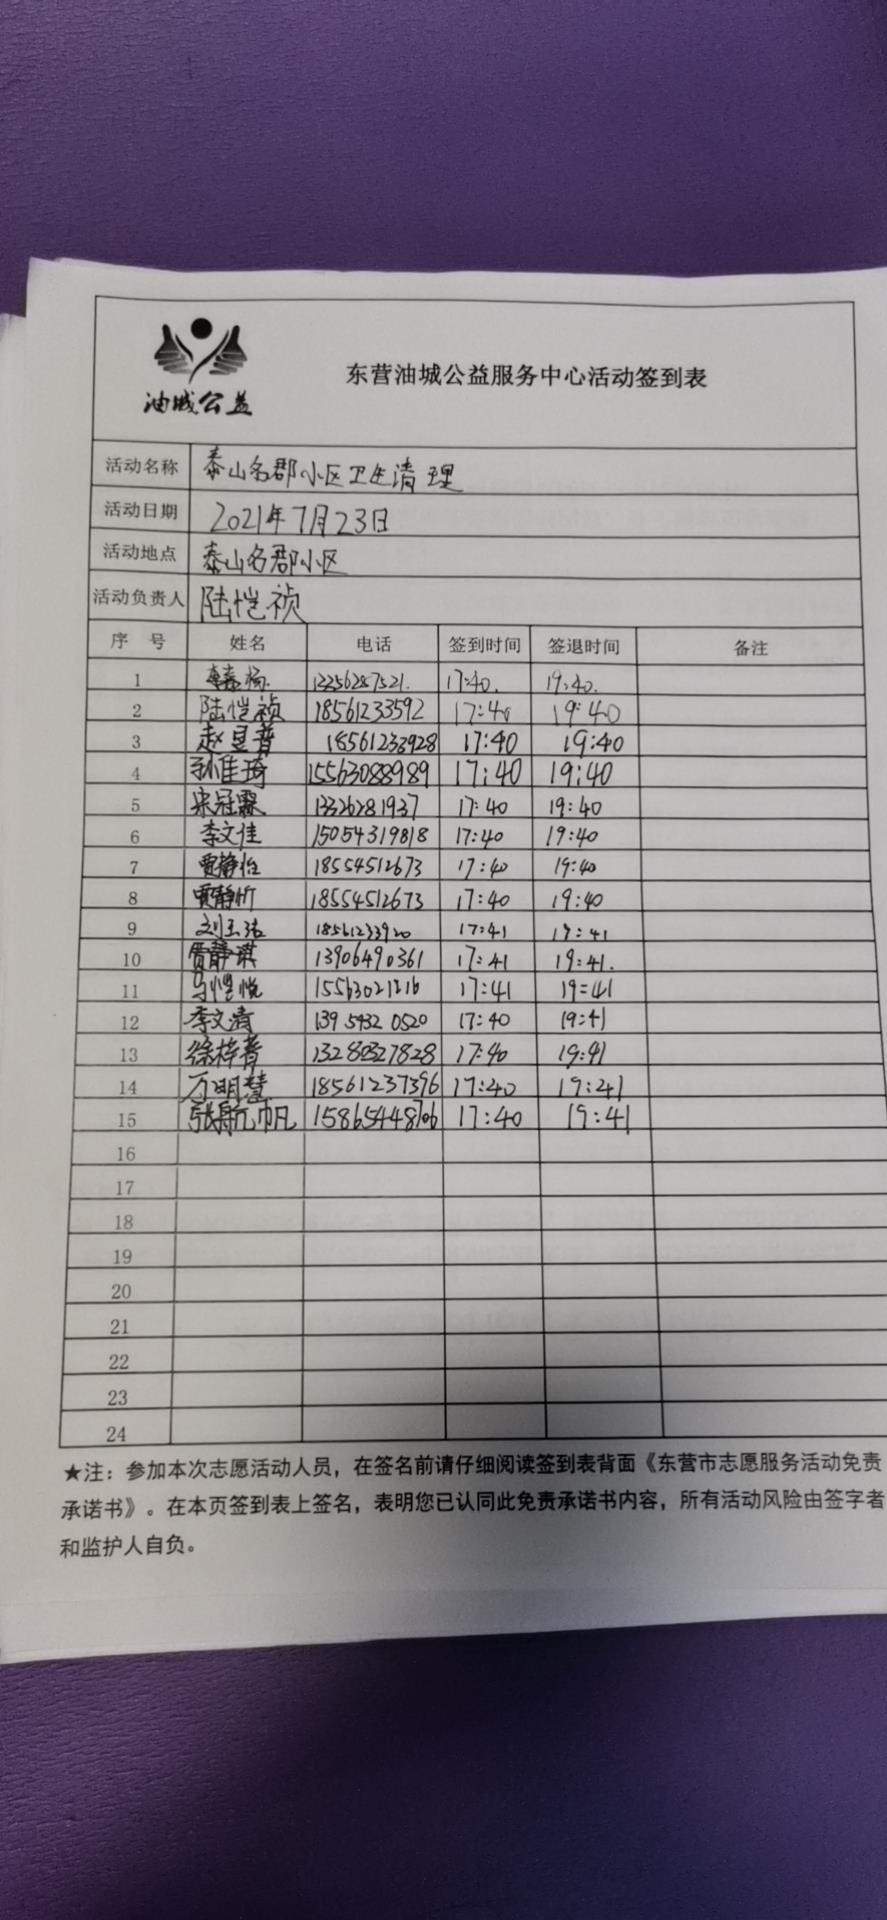 油城公益
东营油城公益服务中心活动签到表
活动名称 泰山名郡小区卫生清理
活动日期 2021年7月23日
活动地点 泰山名郡小区
活动负责人 陆恺祯
序 号 姓名 电话 签到时间 签退时间 备注
1 17:40. 19:40.
2 陆恺祯 18561233592 17:40 19:40
3 赵昱普 18561233928 17:40 19:40
4 孙佳琦 15563088989 17:40 19:40
5 宋冠霖 13326281937 17:40 19:40
6 李文佳 15054319818 17:40 19:40
7 贾静怡 18554512673 17:40 19:40
8 贾静忻 18554512673 17:40 19:40
9 刘玉洁 18561233920 17:41 19:41
10 贾静琪 13906490361 17:41 19:41.
11 17:41 19:41
12 李文清 139 5432 0520 17:40 19:41
13 徐梓菁 13280327828 17:40 19:41
14 万明慧 18561237396 17:40 19:41
15 张航帆 15865448706 17:40 19:41
16
17
18
19
20
21
22
23
24
★注：参加本次志愿活动人员，在签名前请仔细阅读签到表背面《东营市志愿服务活动免责
承诺书》。在本页签到表上签名，表明您已认同此免责承诺书内容，所有活动风险由签字者
和监护人自负。